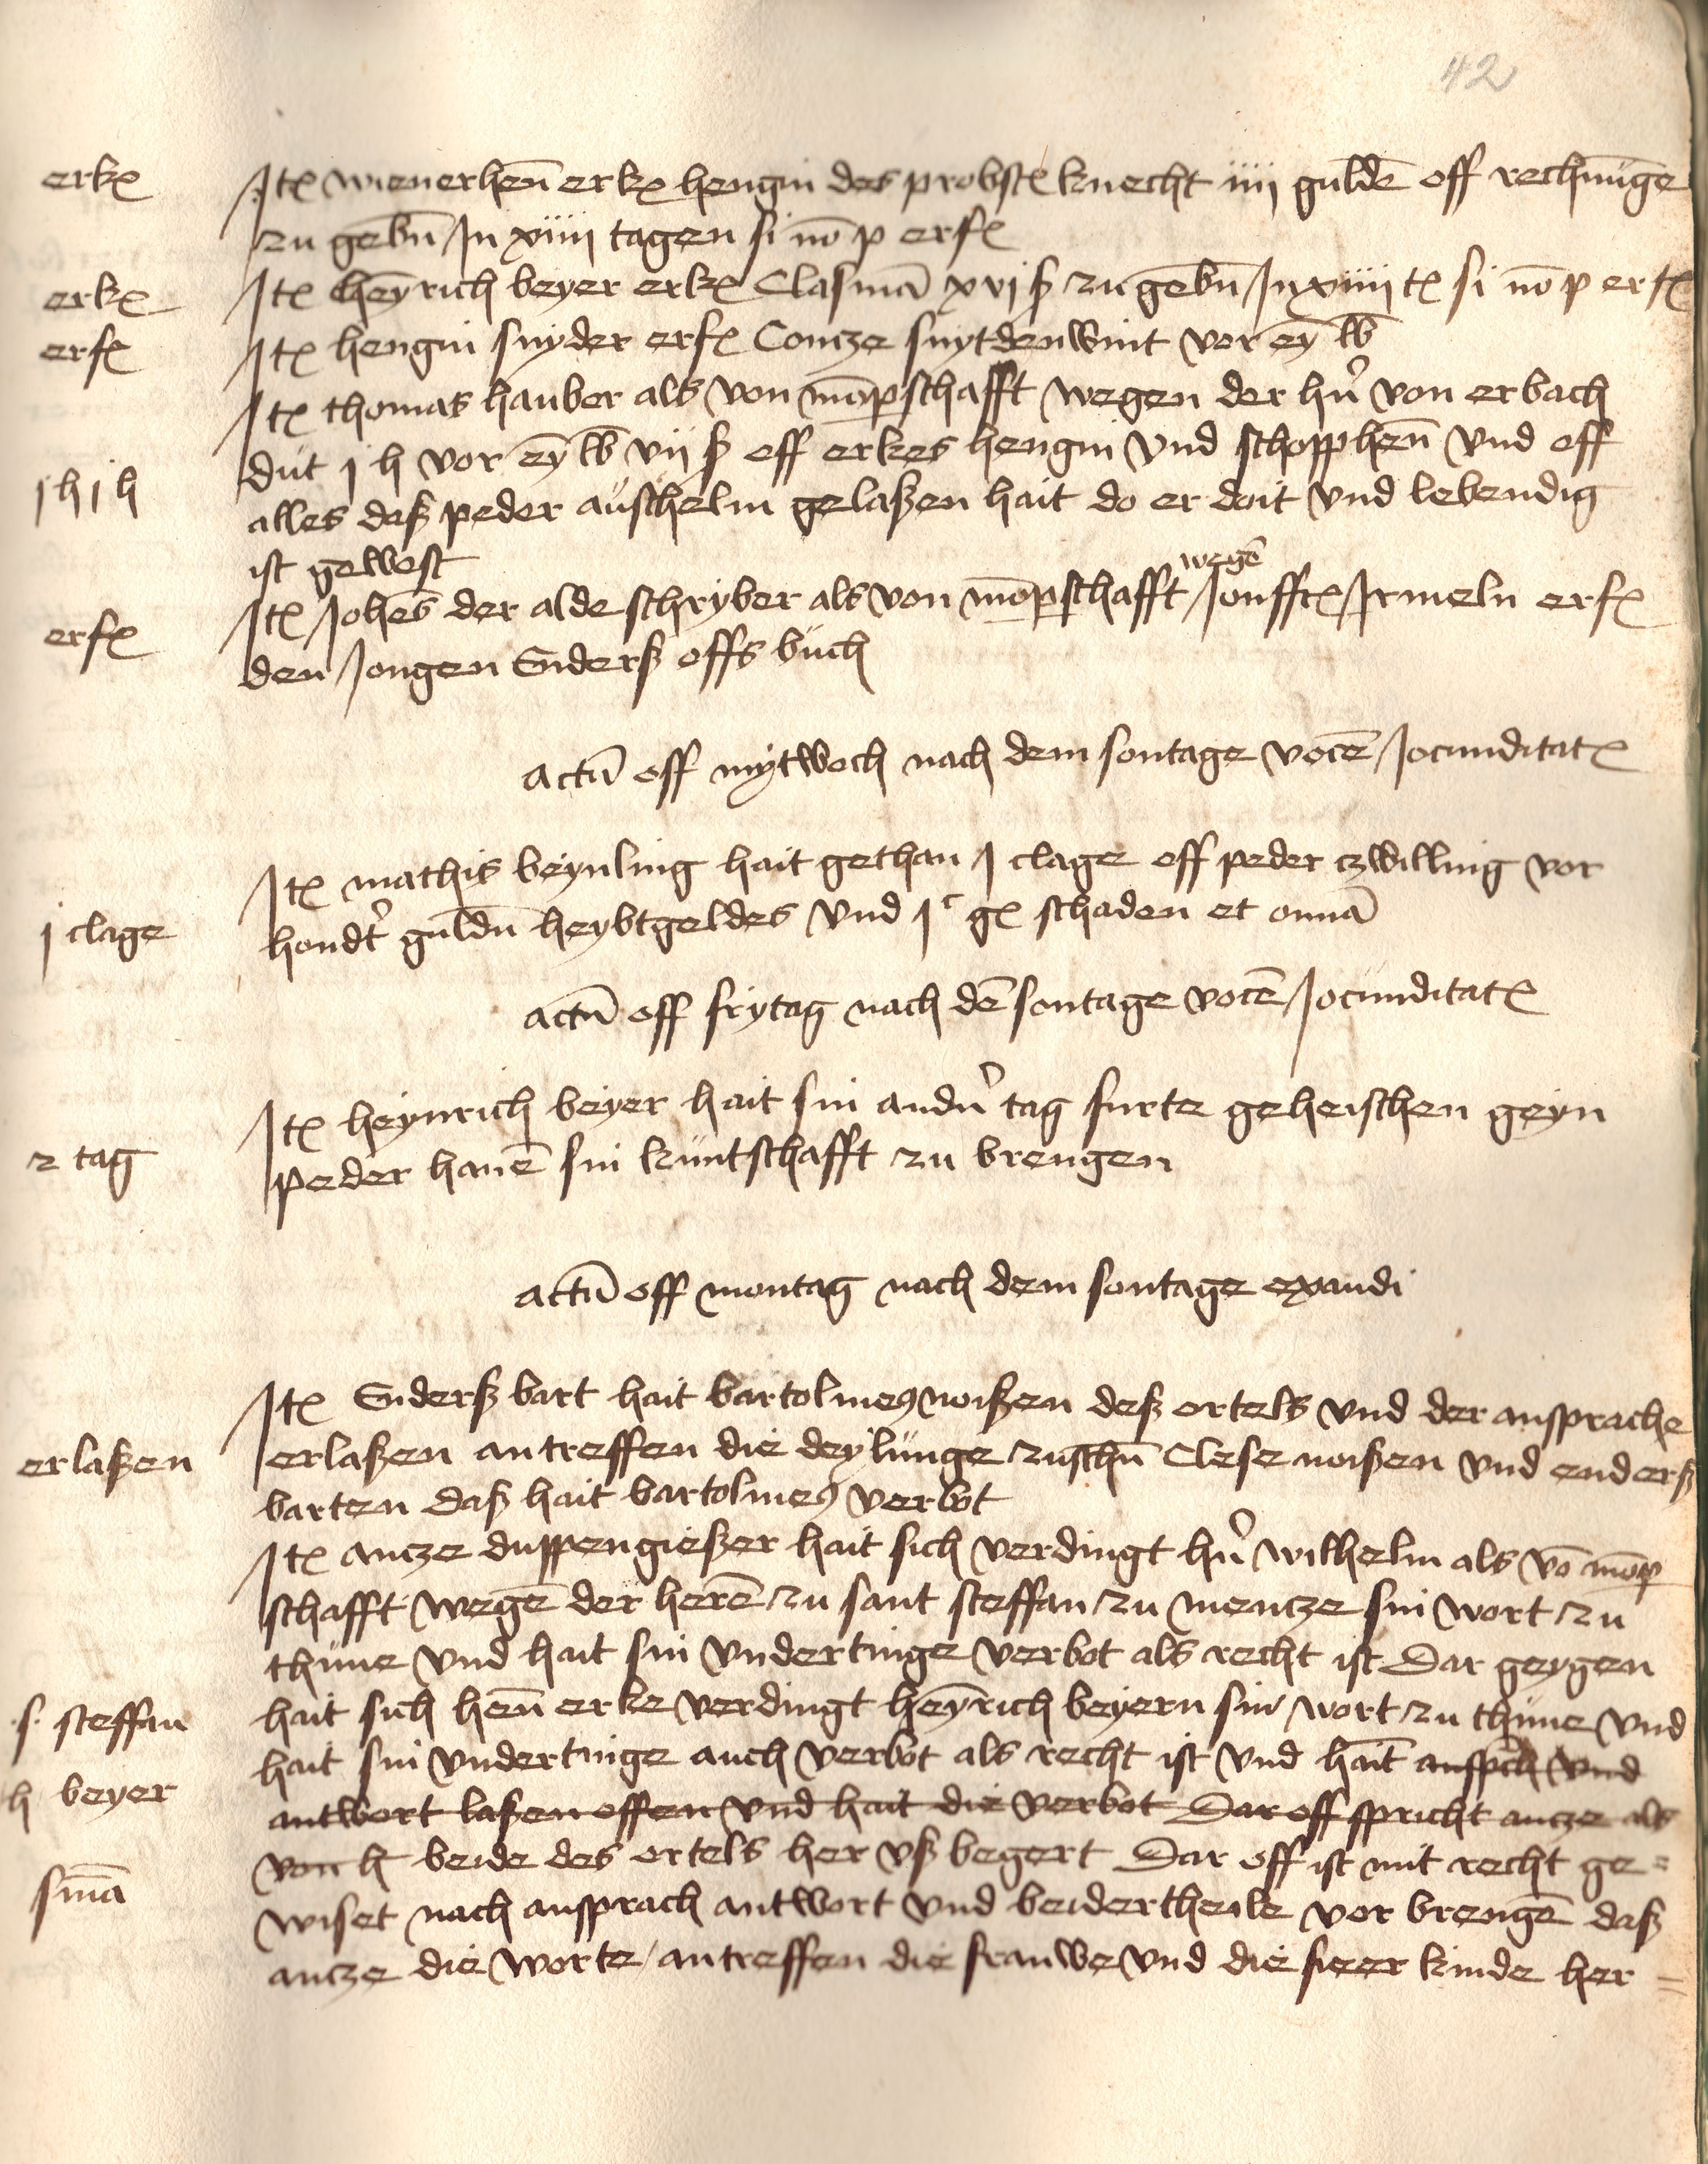 42
erkꝫ
Itꝫ wienerhen̄ erkꝫ hengin des probstꝫ knecht iiij guldē off rechnūge
zu gebn̄ In xiiij tagen si nō p erfꝫ
erkꝫ
Itꝫ heȳrich beyer erkꝫ Clasmā xvj ß zu gebn̄ In xiiij tꝫ si nō p erfꝫ
erfꝫ
Itꝫ hengin snyder erfꝫ Concze snytdenwint vor eȳ lb
Itꝫ thomas hauber als von mōpschafft wegen der hn̄ von erbach
dut j h vor eȳ lb vij ß off erkes hengin vnd schopphen̄ vnd off
j h j h
alles daß peder auschelm gelaßen hait do er doit vnd lebendig
ist gewest
Itꝫ Johēs der alde schryber als von mōpschafft wegē Jonffrꝫ Irmeln erfꝫ
erfꝫ
den Jongen Enderß offs buch
actū off mytwoch nach dem sontage vocē Jocunditatꝫ
Itꝫ mathis beynling hait gethan j clage off peder czwilling vor
j clage
hondt̄ guldn̄ heybtgeldes vnd jᶜ gꝫ schaden et onnā
actū off frytag nach dē sontage vocē Jocunditatꝫ
Itꝫ heynrich beyer hait sin andn̄ tag furte geheischen geyn
2 tag
peder hanē sin kuntschafft zu brengen
actū off montag nach dem sontage exaudi
Itꝫ Enderß bart hait bartolmeꝯ noißen deß ortels vnd der ansprache
erlaßen
erlaßen antreffen die deylunge zuschn̄ Clese noißen vnd enderß
barten daß hait bartolmeꝯ verbot
Itꝫ ancze duppengießer hait sich verdingt hn̄ wilhelm als vō mōp
schafft wegē der herē zu sant steffan zu mencze sin wort zu
thune vnd hait sin vndertinge verbot als recht ist Dar geygen
s. steffan
hait sich hen̄ erke verdingt heȳrich beyern sin wort zu thune vnd
hait sin vndertinge auch verbot als recht ist vnd hait anspch vnd
h beyer
antwort laßen offen vnd hait die verbot Dar off spricht ancze als
von h beide des ortels her vß begert Dar off ist mit recht ge=
smā
wiset nach ansprach antwort vnd beidertheile vor brengē daß
ancze die worte antreffen die frauwe vnd die sieer kinde her =